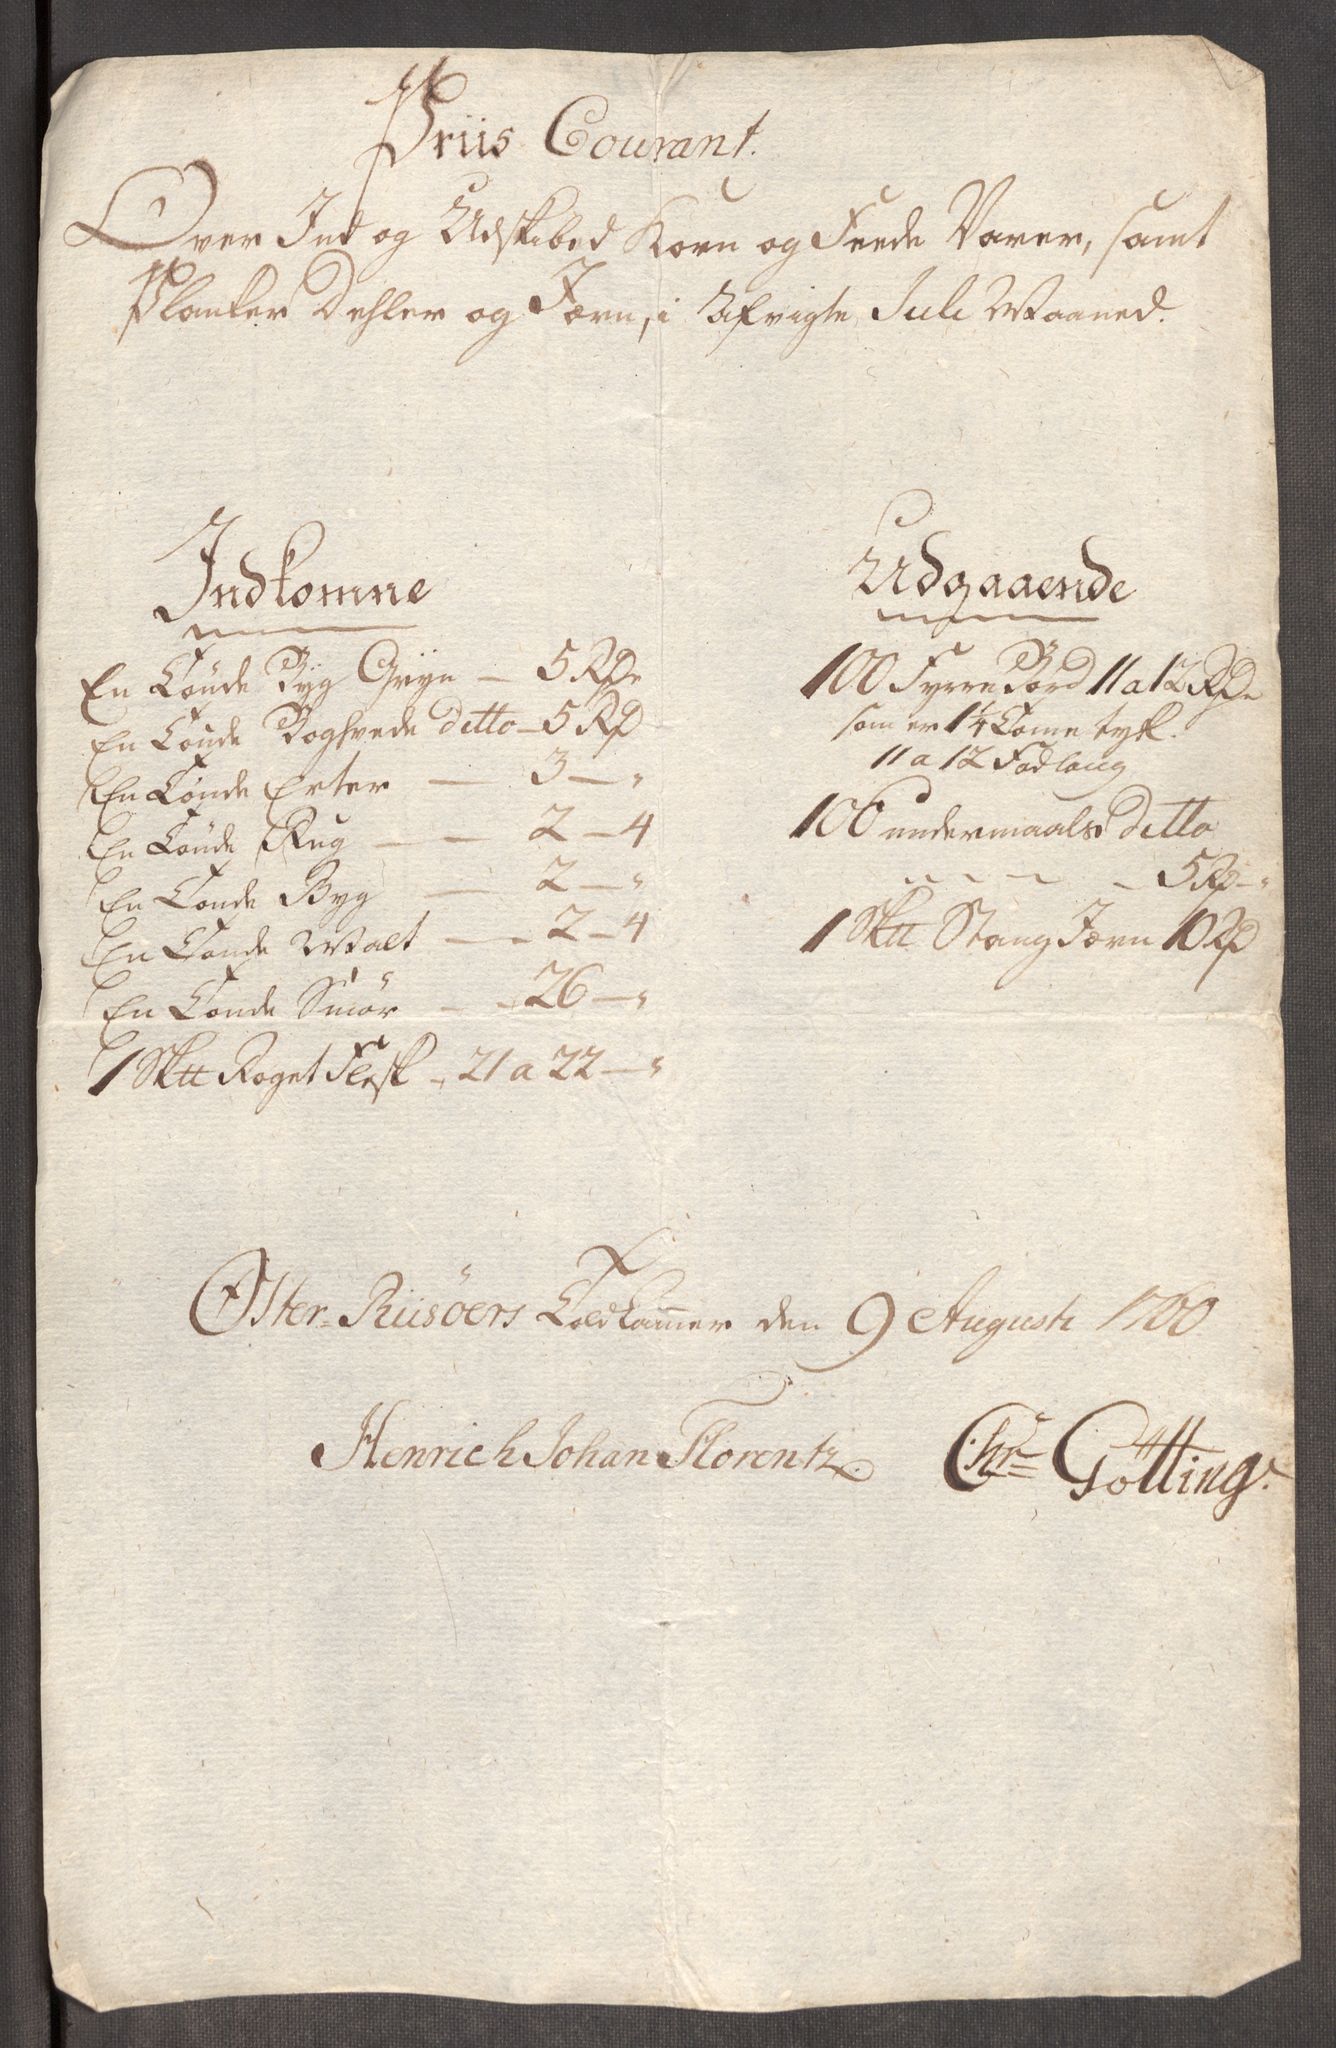 Priis Courant.
Over Ind og Udskibed Korn og Feede Varer, samt
Planker Dehler og Jærn, i Afvigte Juli Maaned.
Indkomne
En Tönde Byg Gryn — 5 Rd
En Tönde Boghvede ditto — 5 Rd
En Tönde Erter — 3 — "
En Tönde Rug — 2 — 4
En Tönde Byg — 2 — "
En Tönde Malt — 2 — 4
En Tönde Smör — 26 — "
1 Sktt Röget Flesk — 21 a 22 — "
Udgaaende
100 Fyrre Bord 11 a 12 Rd
som er 1¼ Tomme tyk
11 a 12 Fod lang
100 undermaals ditto
5 Rd — "
1 Sktt Stang Jærn 10 Rd
Öster-Riisöers Toldkammer den 9 Augusti 1760
Henrich Johan Florentz Chr Götting.